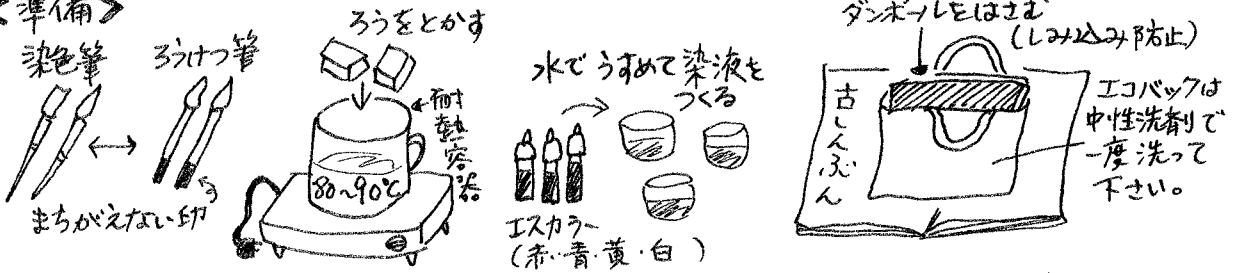 <準備>
染色筆
ろうけつ筆
まちがえない印
ろうをとかす
耐熱容器
80~90℃
水でうすめて染液を
つくる
エスカラー
(赤・青・黄・白)
ダンボールをはさむ
(しみ込み防止)
古しんぶん
エコバックは
中性洗剤で
一度洗って
下さい。